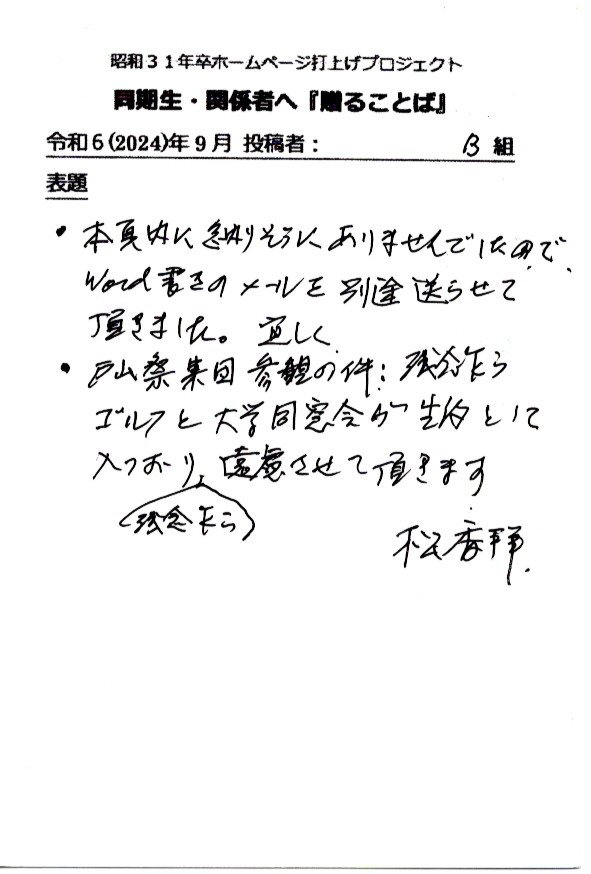 昭和31年卒ホームページ打上げプロジェクト
同期生・関係者へ『贈ることば』
令和6(2024)年9月 投稿者： B 組
表題
・本頁内に納りそうにありませんでしたので、
Word書きのメールを別途送らせて
頂きました。宜しく
・戸山祭集団参観の件：残念乍ら
ゴルフと大学同窓会が 先約として
入っおり、遠慮させて頂きます
(残念乍ら)
拝